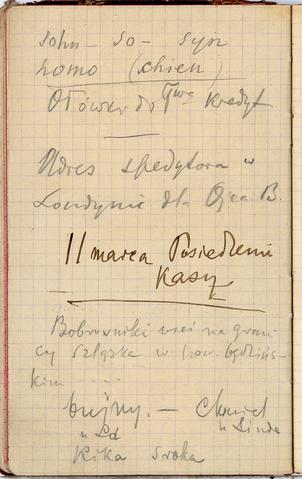 sohn – so – syn
homo (chien)
Ołówki do kredyt
Adres spedytora w
Londynie dla Ojca. B.
11 marca Posiedzenie
Kasy
Bobrowniki wieś na grani-
cy Szląska w pow. będziń-
skim
bujny. –
Kika Sroka